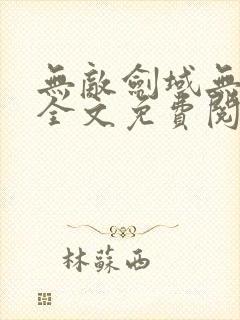 無敵劍域無
全文免費閱
林蘇西